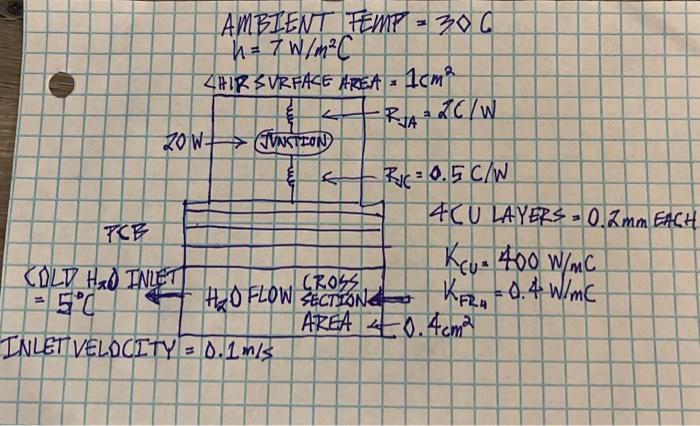 AMBIENT TEMP = 30 C
h = 7 W/m²C
CHIP SURFACE AREA = 1cm²
R_JA = 2C/W
20 W → JUNCTION
R_JC = 0.5 C/W
4 CU LAYERS = 0.2mm EACH
PCB
K_CU = 400 W/mC
K_FR4 = 0.4 W/mC
COLD H₂O INLET
= 5°C
H₂O FLOW CROSS
SECTION
AREA ← 0.4cm²
INLET VELOCITY = 0.1m/s